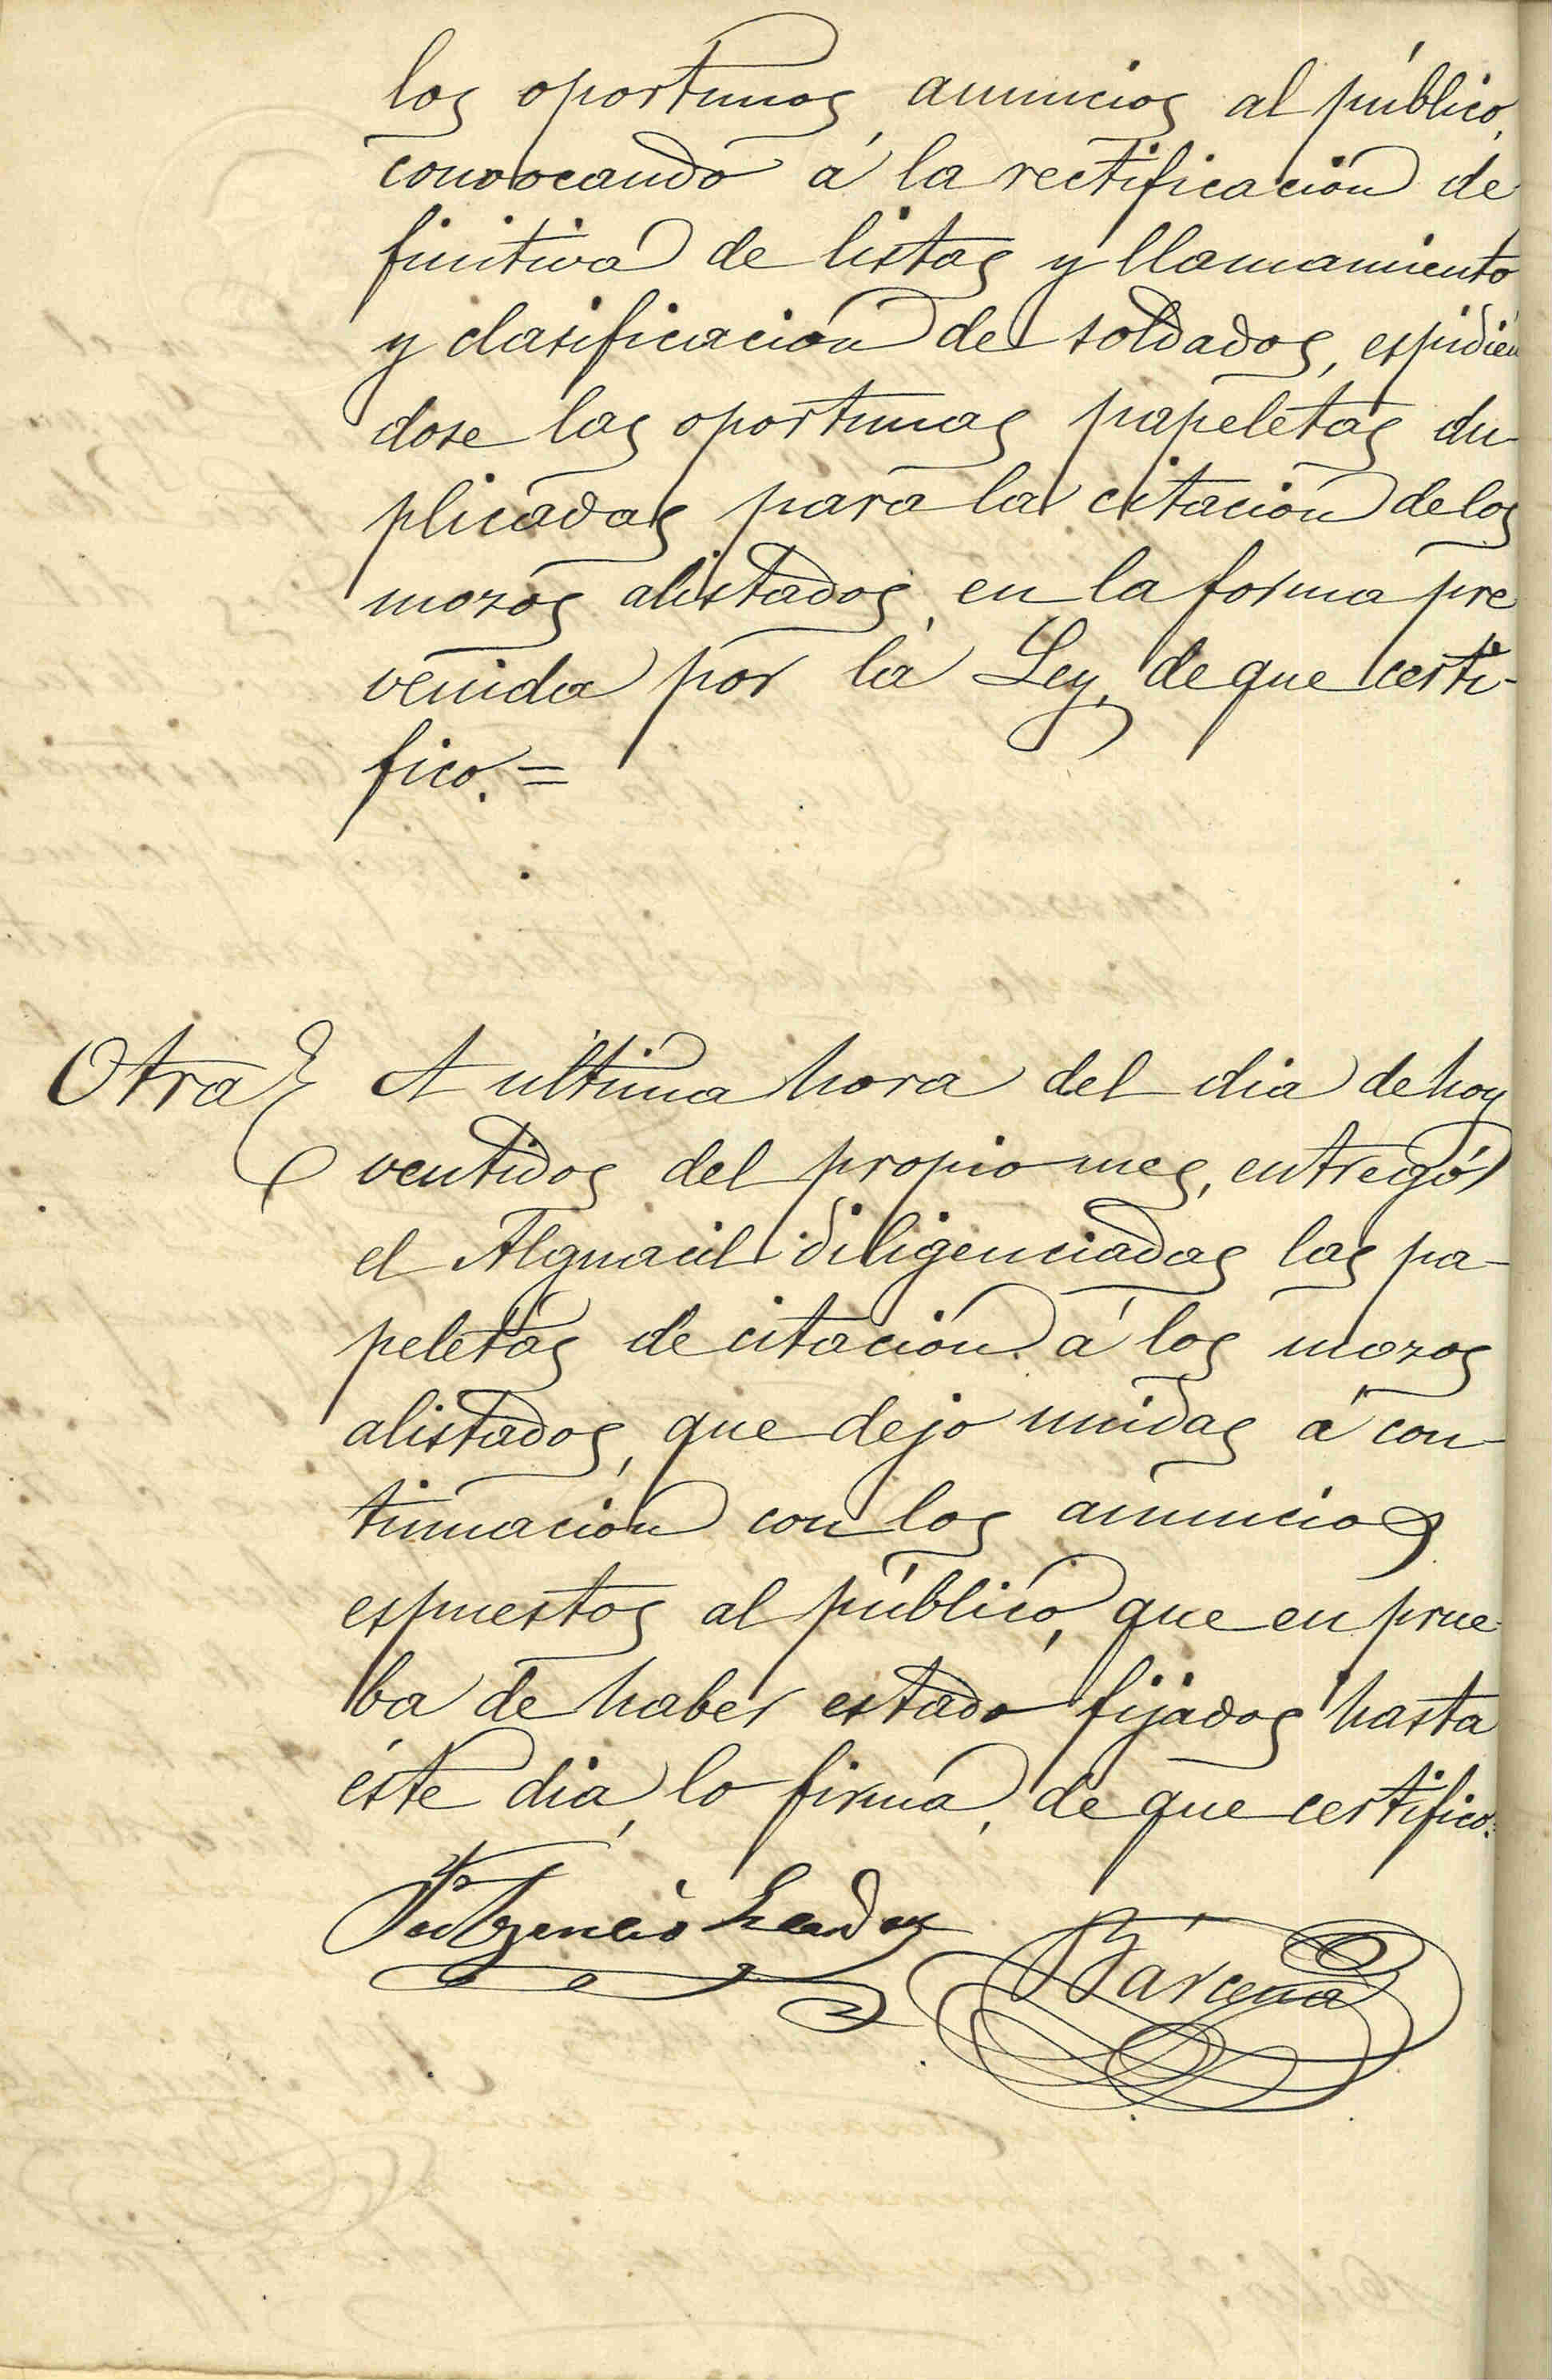 los oportunos anuncios al público,
convocando á la rectificación de
finitiva de listas y llamamiento
y clasificación de soldados, espidién
dose las oportunas papeletas du-
plicadas para la citación de los
mozos alistados en la forma pre
venida por la Ley, de que certi-
fico.=
Otra A última hora del dia de hoy
ventidos del propio mes, entregó
el Alguacil diligenciadas las pa-
peletas de citación á los mozos
alistados, que dejo unidas á con-
tinuación con los anuncios
espuestos al público, que en prue-
ba de haber estado fijados hasta
éste dia, lo firma, de que certifico.=
Fulgencio
Bárcena